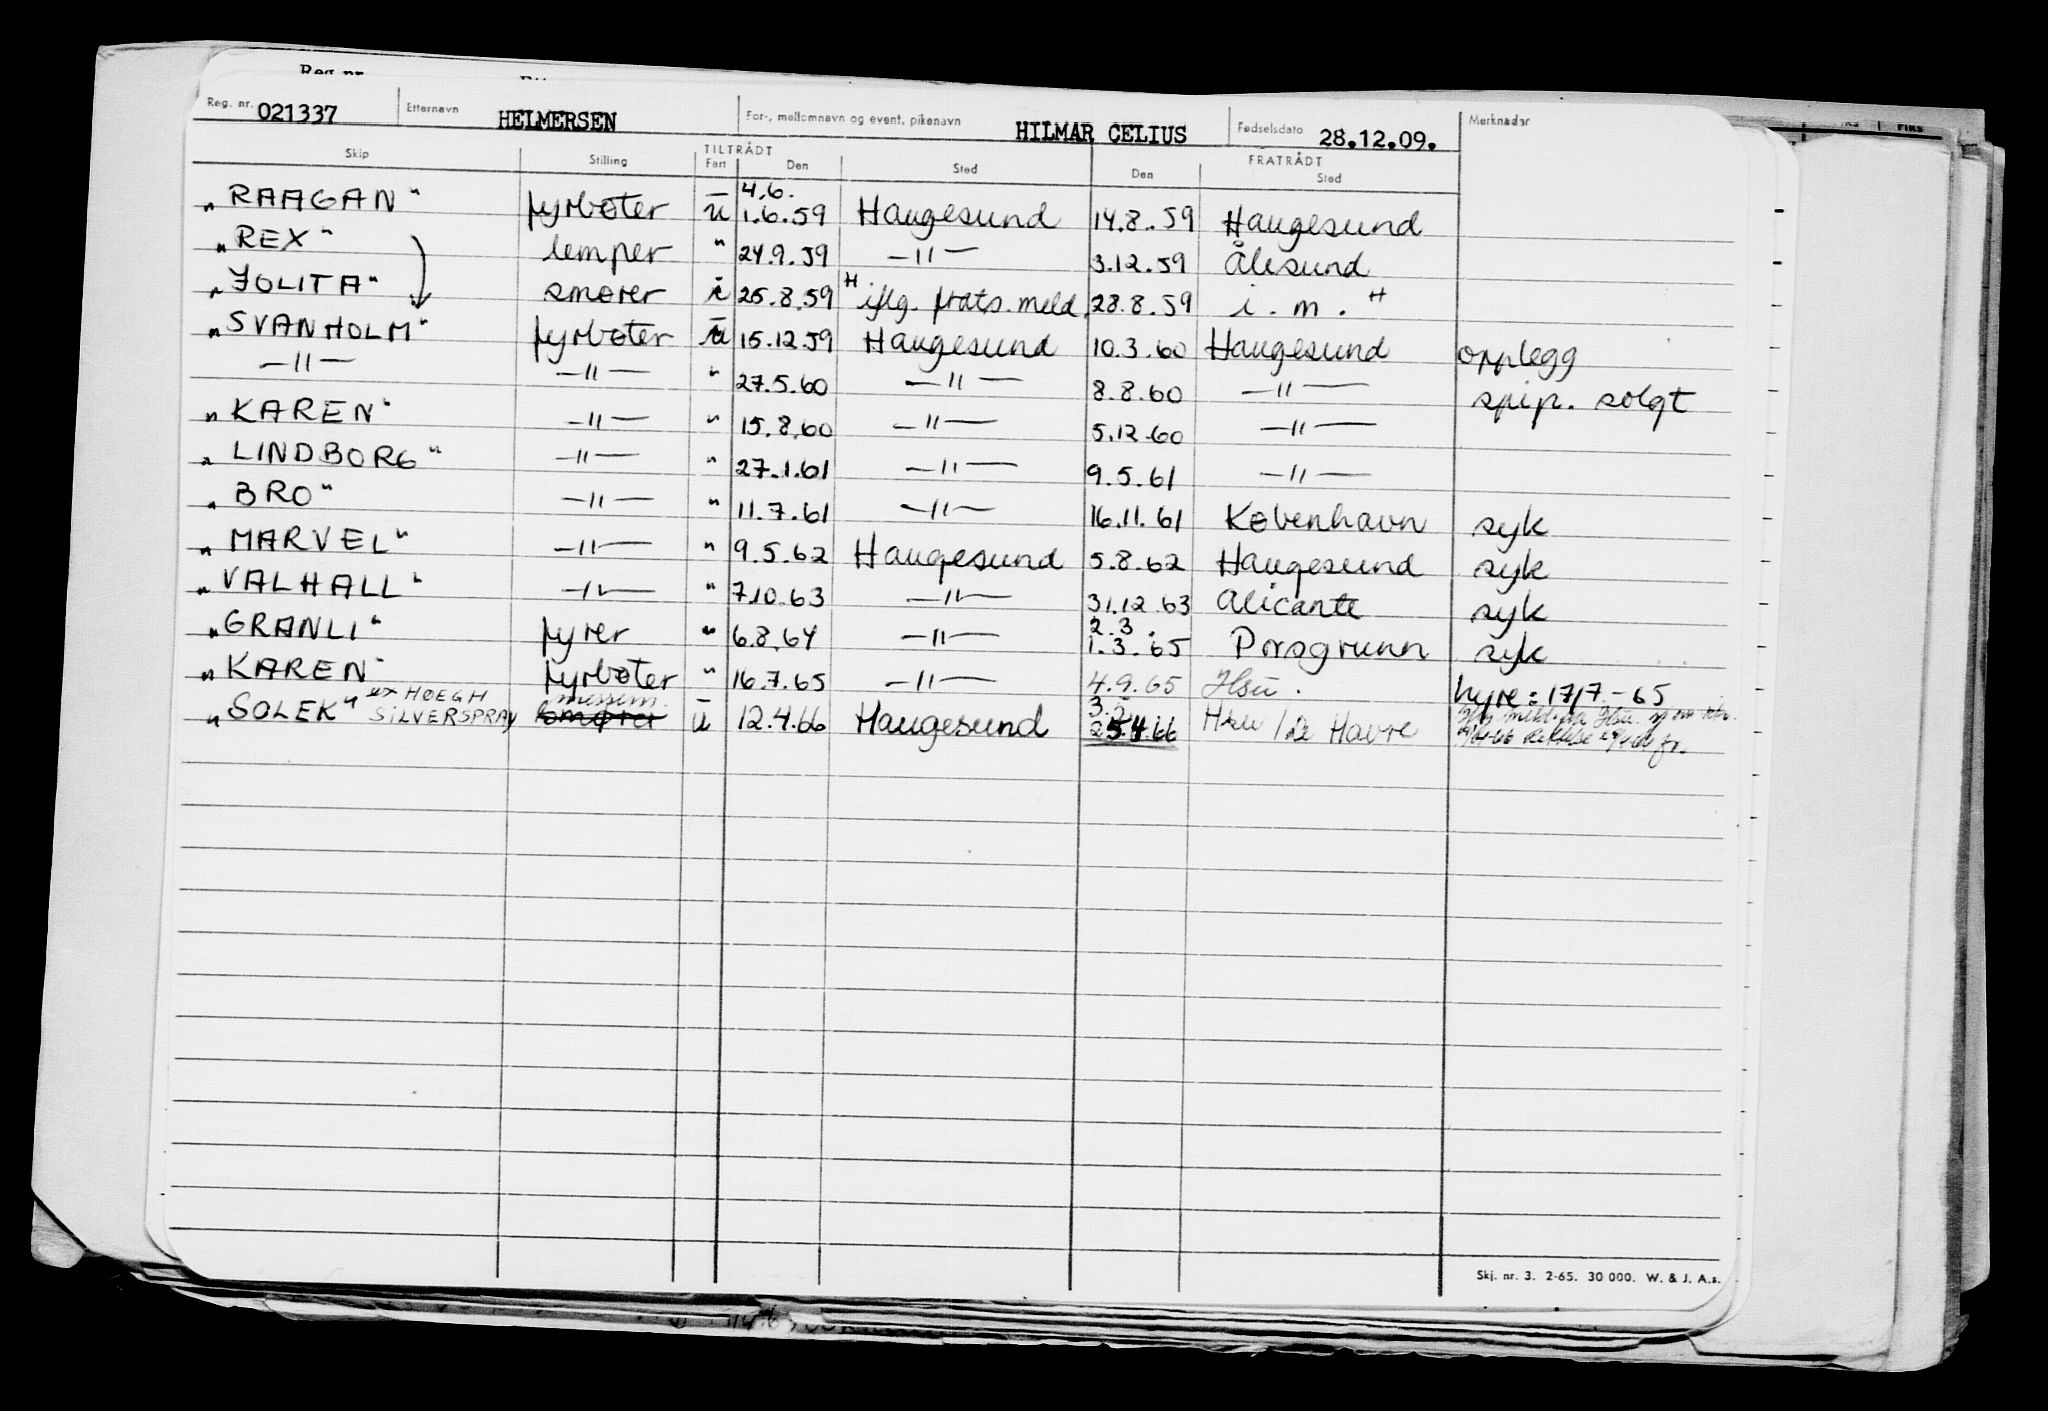 Reg. nr. 021337 Etternavn HELMERSEN For-, mellomnavn og event. pikenavn HILMAR CELIUS Fødselsdato 28.12.09. Merknader
TILTRÅDT FRATRÅDT
Skip Stilling Fart Den Sted Den Sted
4.6.
"RAAGAN" fyrbøter u 1.6.59 Haugesund 14.8.59 Haugesund
"REX" lemper " 24.9.59 —"— 3.12.59 Ålesund
"JOLITA" smører i 25.8.59 H iflg. frats. meld. 28.8.59 i. m. H
"SVANHOLM" fyrbøter u 15.12.59 Haugesund 10.3.60 Haugesund opplegg
—"— —"— " 27.5.60 —"— 8.8.60 —"— skip. solgt
"KAREN" —"— " 15.8.60 —"— 5.12.60 —"—
"LINDBORG" —"— " 27.1.61 —"— 9.5.61 —"—
"BRO" —"— " 11.7.61 —"— 16.11.61 København syk
"MARVEL" —"— " 9.5.62 Haugesund 5.8.62 Haugesund syk
"VALHALL" —"— " 7.10.63 —"— 31.12.63 Alicante syk
2.3.
"GRANLI" fyrer " 6.8.64 —"— 1.3.65 Porsgrunn syk
"KAREN" fyrbøter " 16.7.65 —"— 4.9.65 Hsu. hyre: 17/7.-65
ex HØEGH messem.
"SOLEK" SILVERSPRAY smører u 12.4.66 Haugesund 5.4.66 Hsu / Le Havre
Skj. nr. 3. 2-65. 30 000. W. & J. A.s.